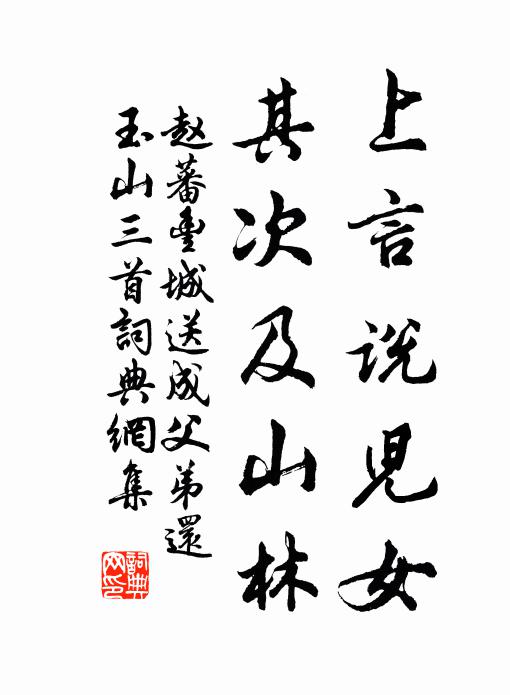 上言说児女
其次及山林
赵蕃豐城送成父弟還
玉山三首詞典網集
詞典
网印